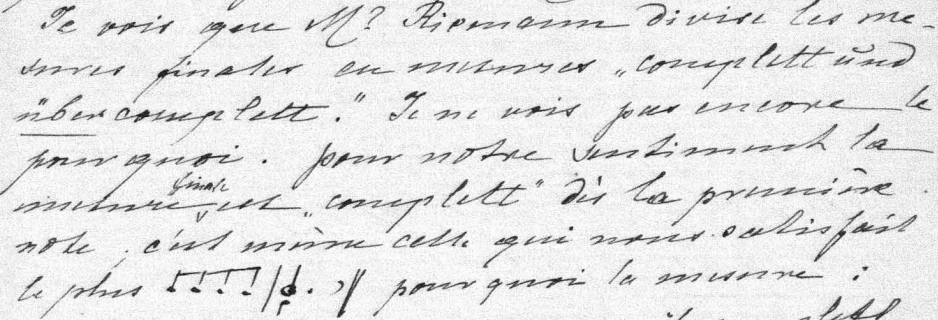 Je vois que Mr Riemann divise les me-
sures finales en mesures „complett und
übercomplett". Je ne vois pas encore le
pourquoi. pour notre sentiment la
mesure finale est „complett" dès la première
note, c'est même celle qui nous satisfait
le plus pourquoi la mesure :